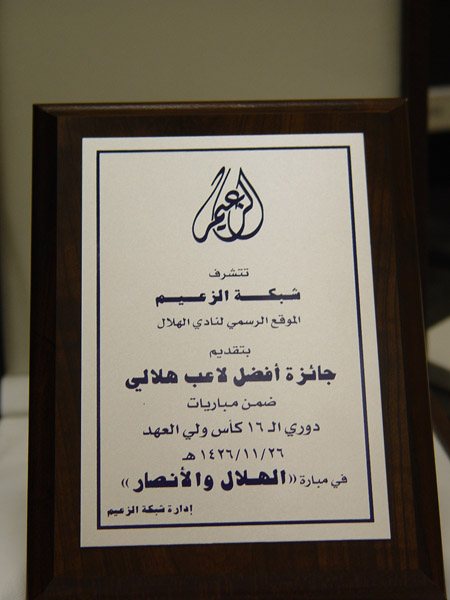 الزعيم
تتشرف
شبكة الزعيم
الموقع الرسمي لنادي الهلال
بتقديم
جائزة أفضل لاعب هلالي
ضمن مباريات
دوري الـ ١٦ كأس ولي العهد
١٤٢٦/١١/٢٦ هـ
في مبارة «الهلال والأنصار»
إدارة شبكة الزعيم